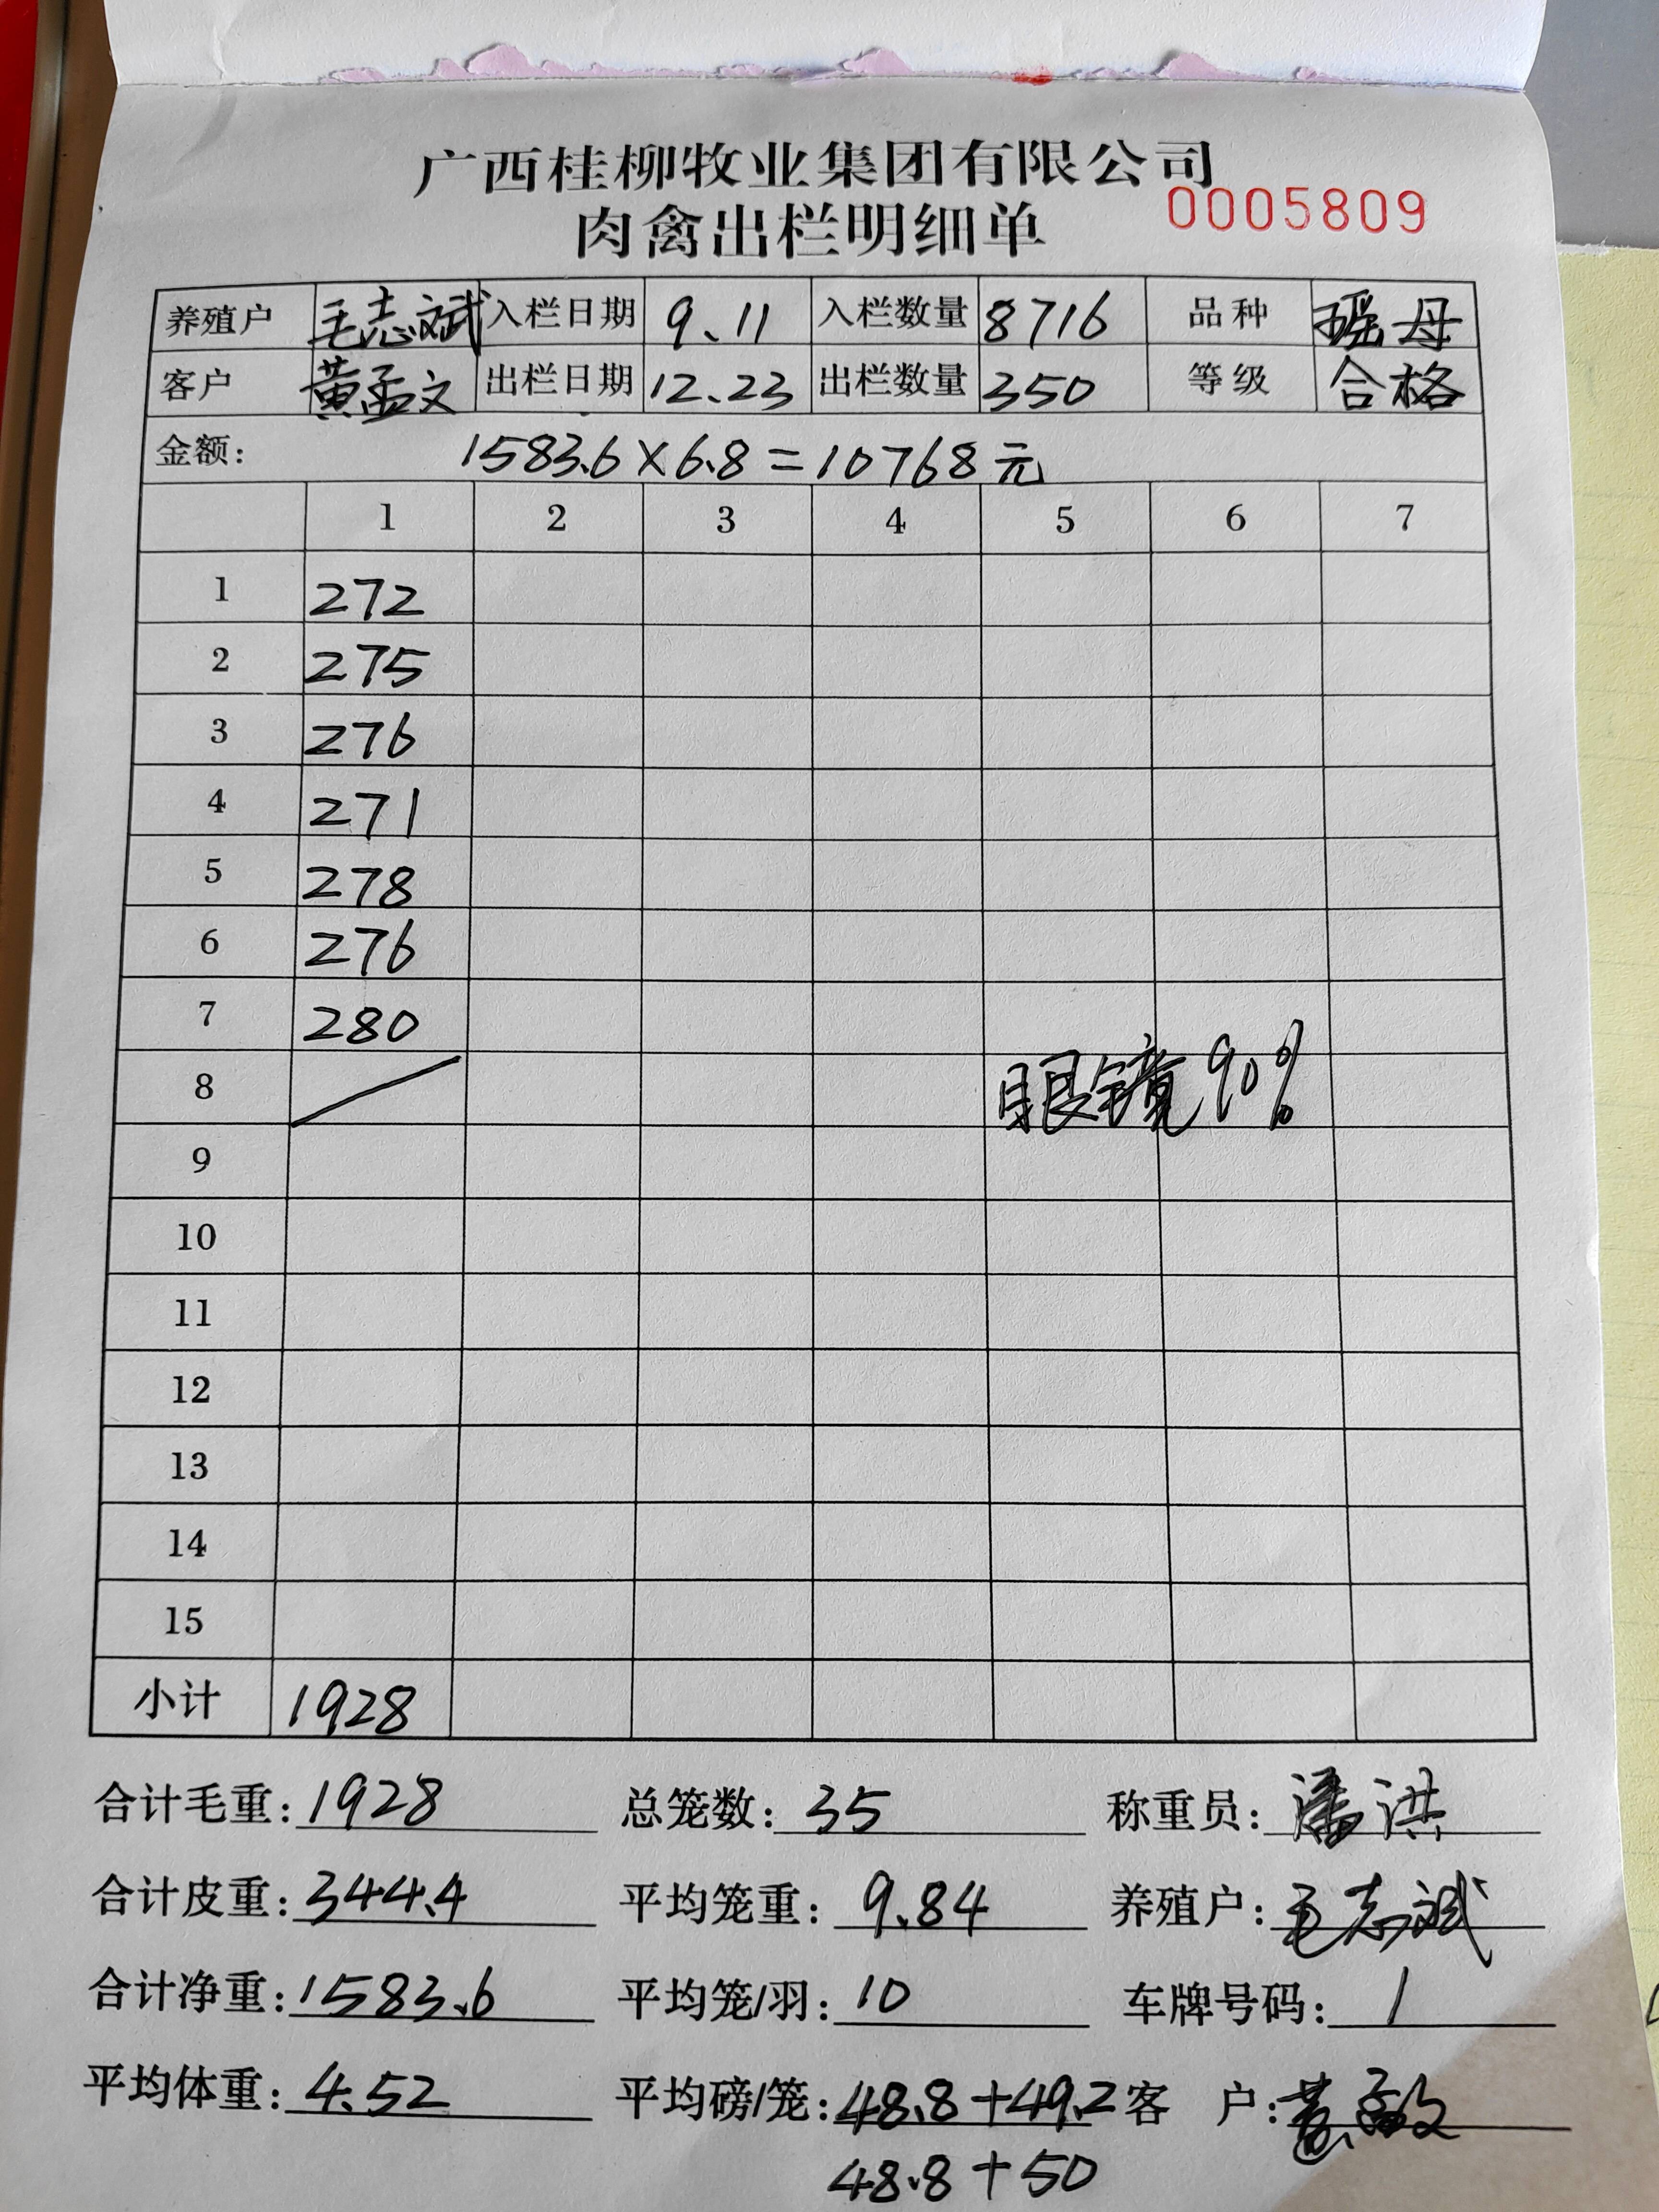 广西桂柳牧业集团有限公司
肉禽出栏明细单 0005809
养殖户 毛志斌 入栏日期 9.11 入栏数量 8716 品种 瑶母
客户 黄孟文 出栏日期 12.23 出栏数量 350 等级 合格
金额: 1583.6×6.8=10768元
1 2 3 4 5 6 7
1 272
2 275
3 276
4 271
5 278
6 276
7 280
8 眼镜90%
9
10
11
12
13
14
15
小计 1928
合计毛重: 1928 总笼数: 35 称重员: 潘洪
合计皮重: 344.4 平均笼重: 9.84 养殖户: 毛志斌
合计净重: 1583.6 平均笼/羽: 10 车牌号码: 1
平均体重: 4.52 平均磅/笼: 48.8+49.2 客 户:
48.8+50